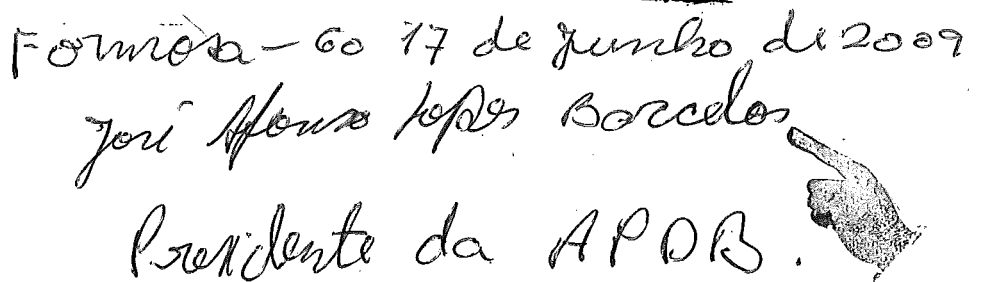 Formosa - Go 17 de Junho de 2009
José Afonso Lopes Barcelos
Presidente da APDB.